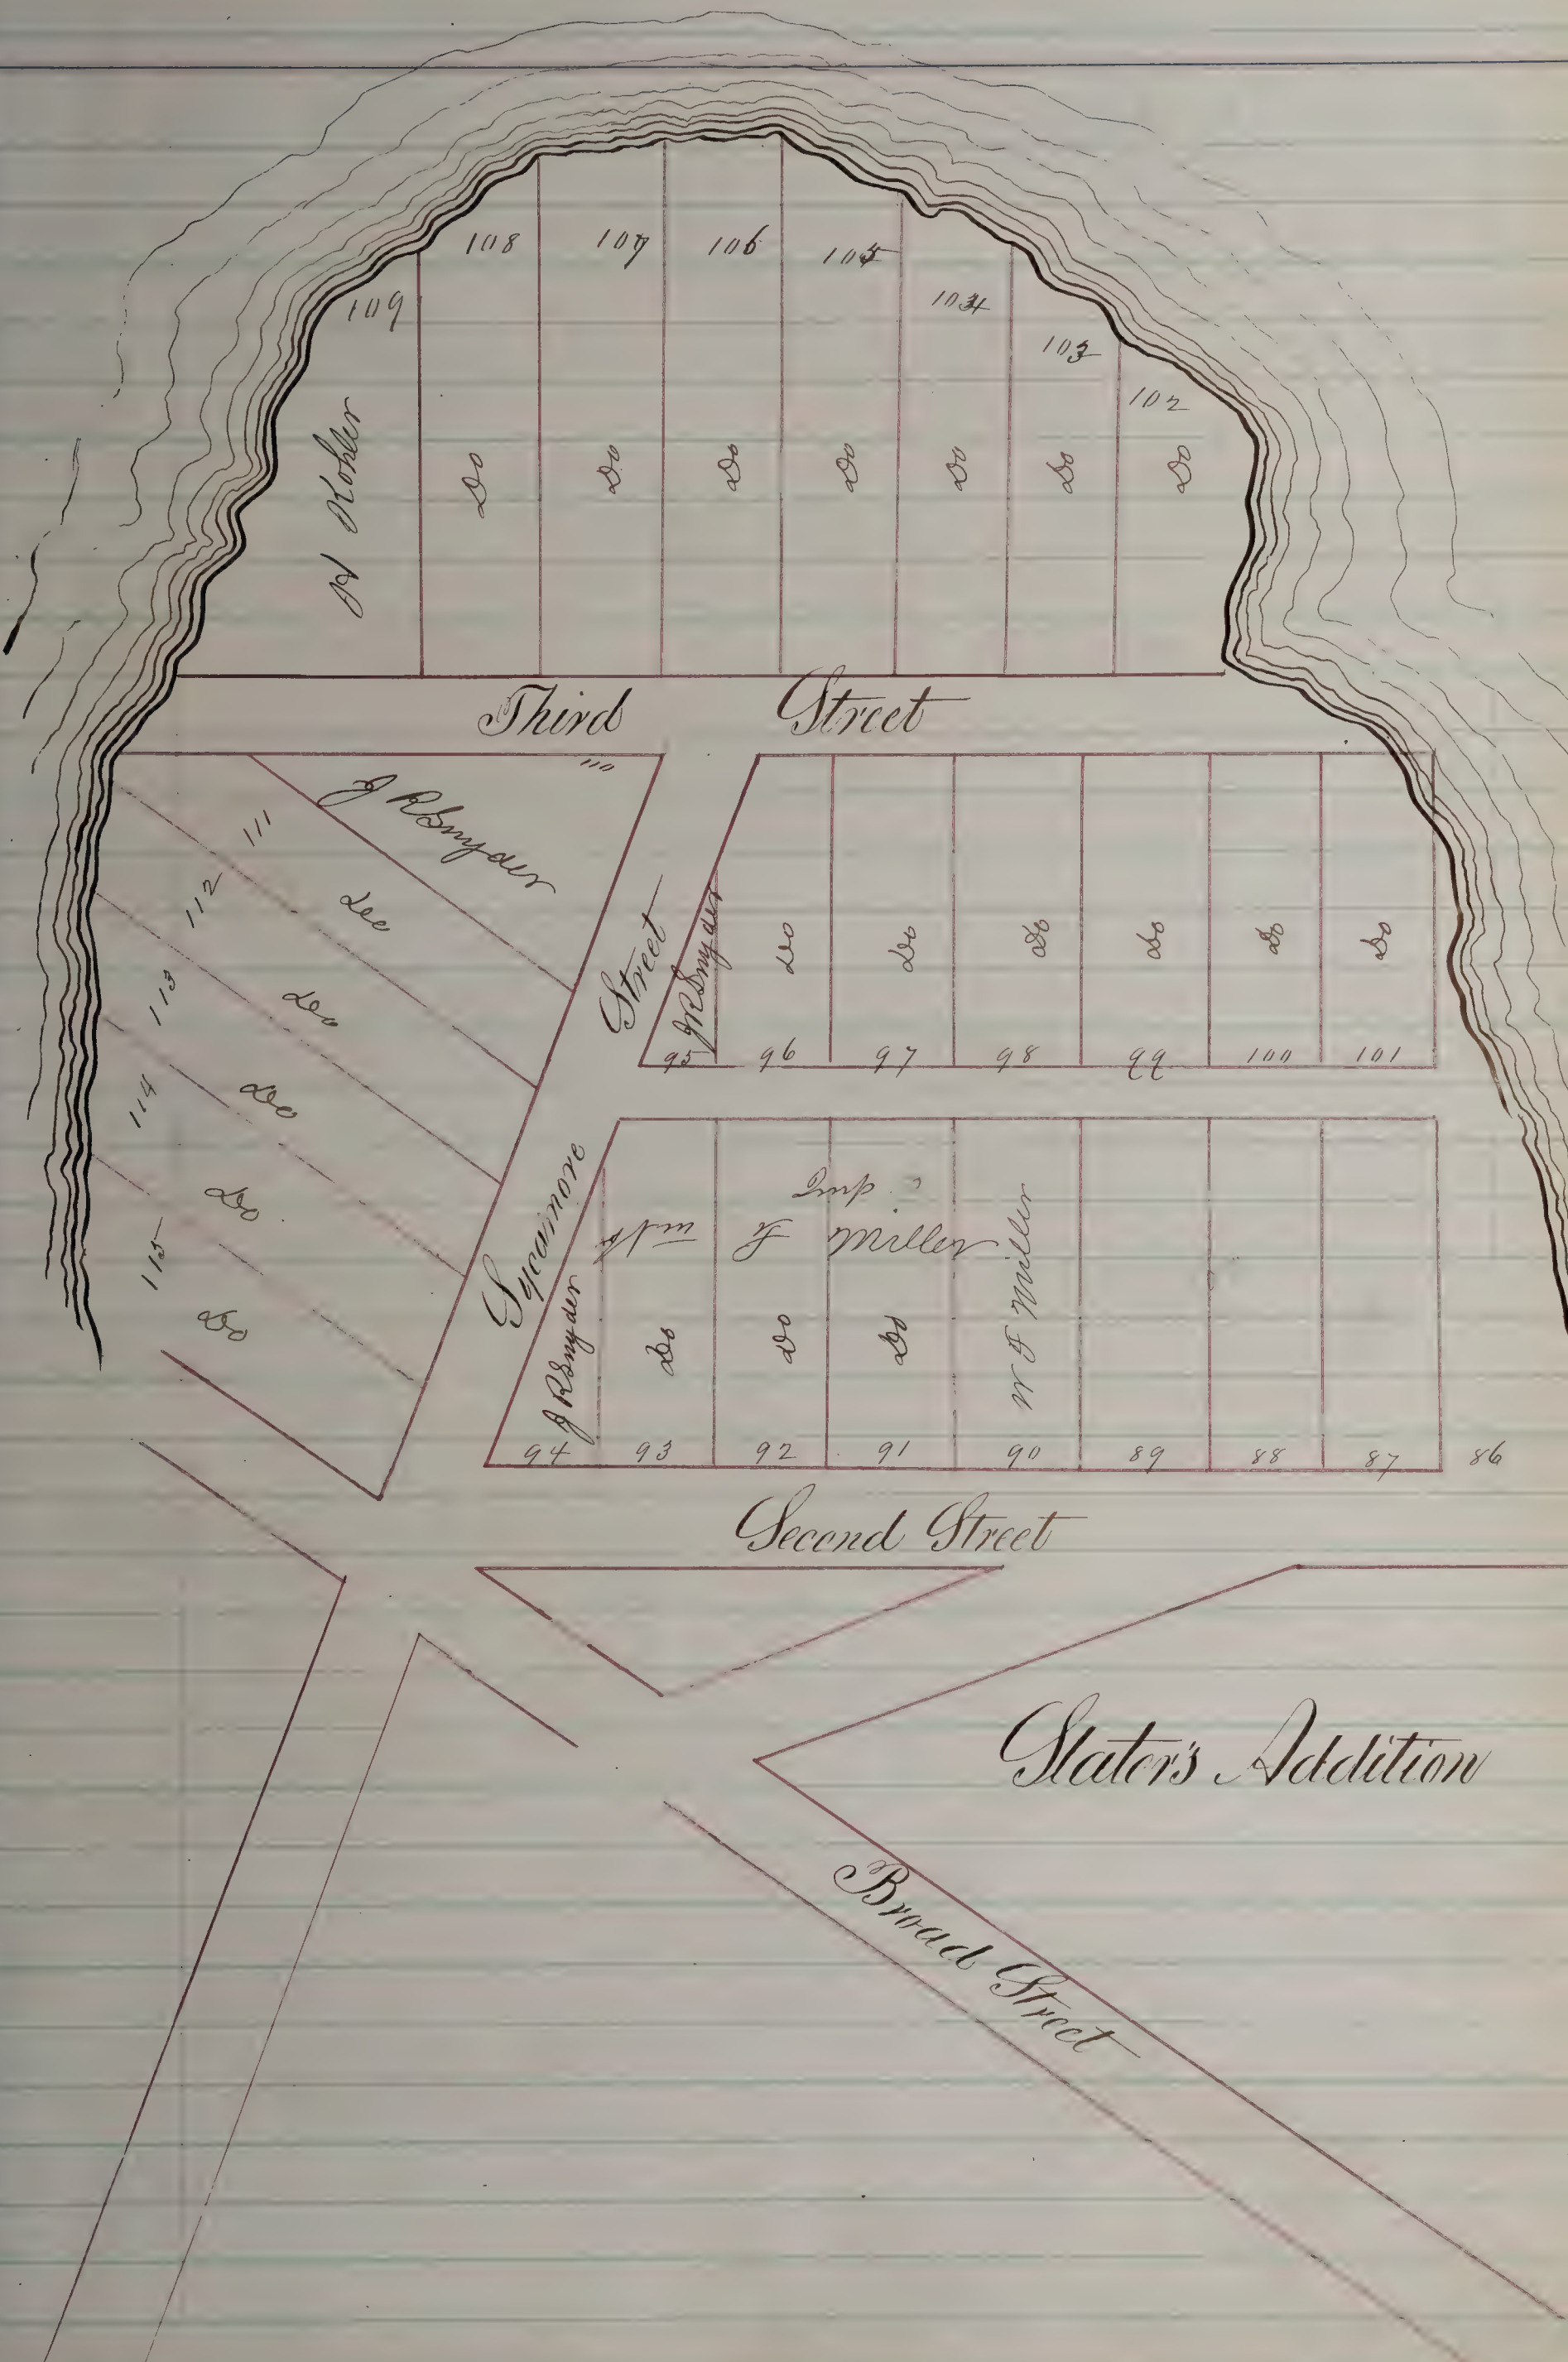 108
107
106
105
104
103
102
109
H Kohler
Do
Do
Do
Do
Do
Do
Do
Third Street
110
J R Snyder
111
Do
112
Do
113
Do
114
Do
115
Do
Sycamore Street
J R Snyder
Do
Do
Do
Do
Do
Do
95
96
97
98
99
100
101
Imp
Miller
J R Snyder
Do
Do
Do
W F Miller
94
93
92
91
90
89
88
87
86
Second Street
Slater's Addition
Broad Street